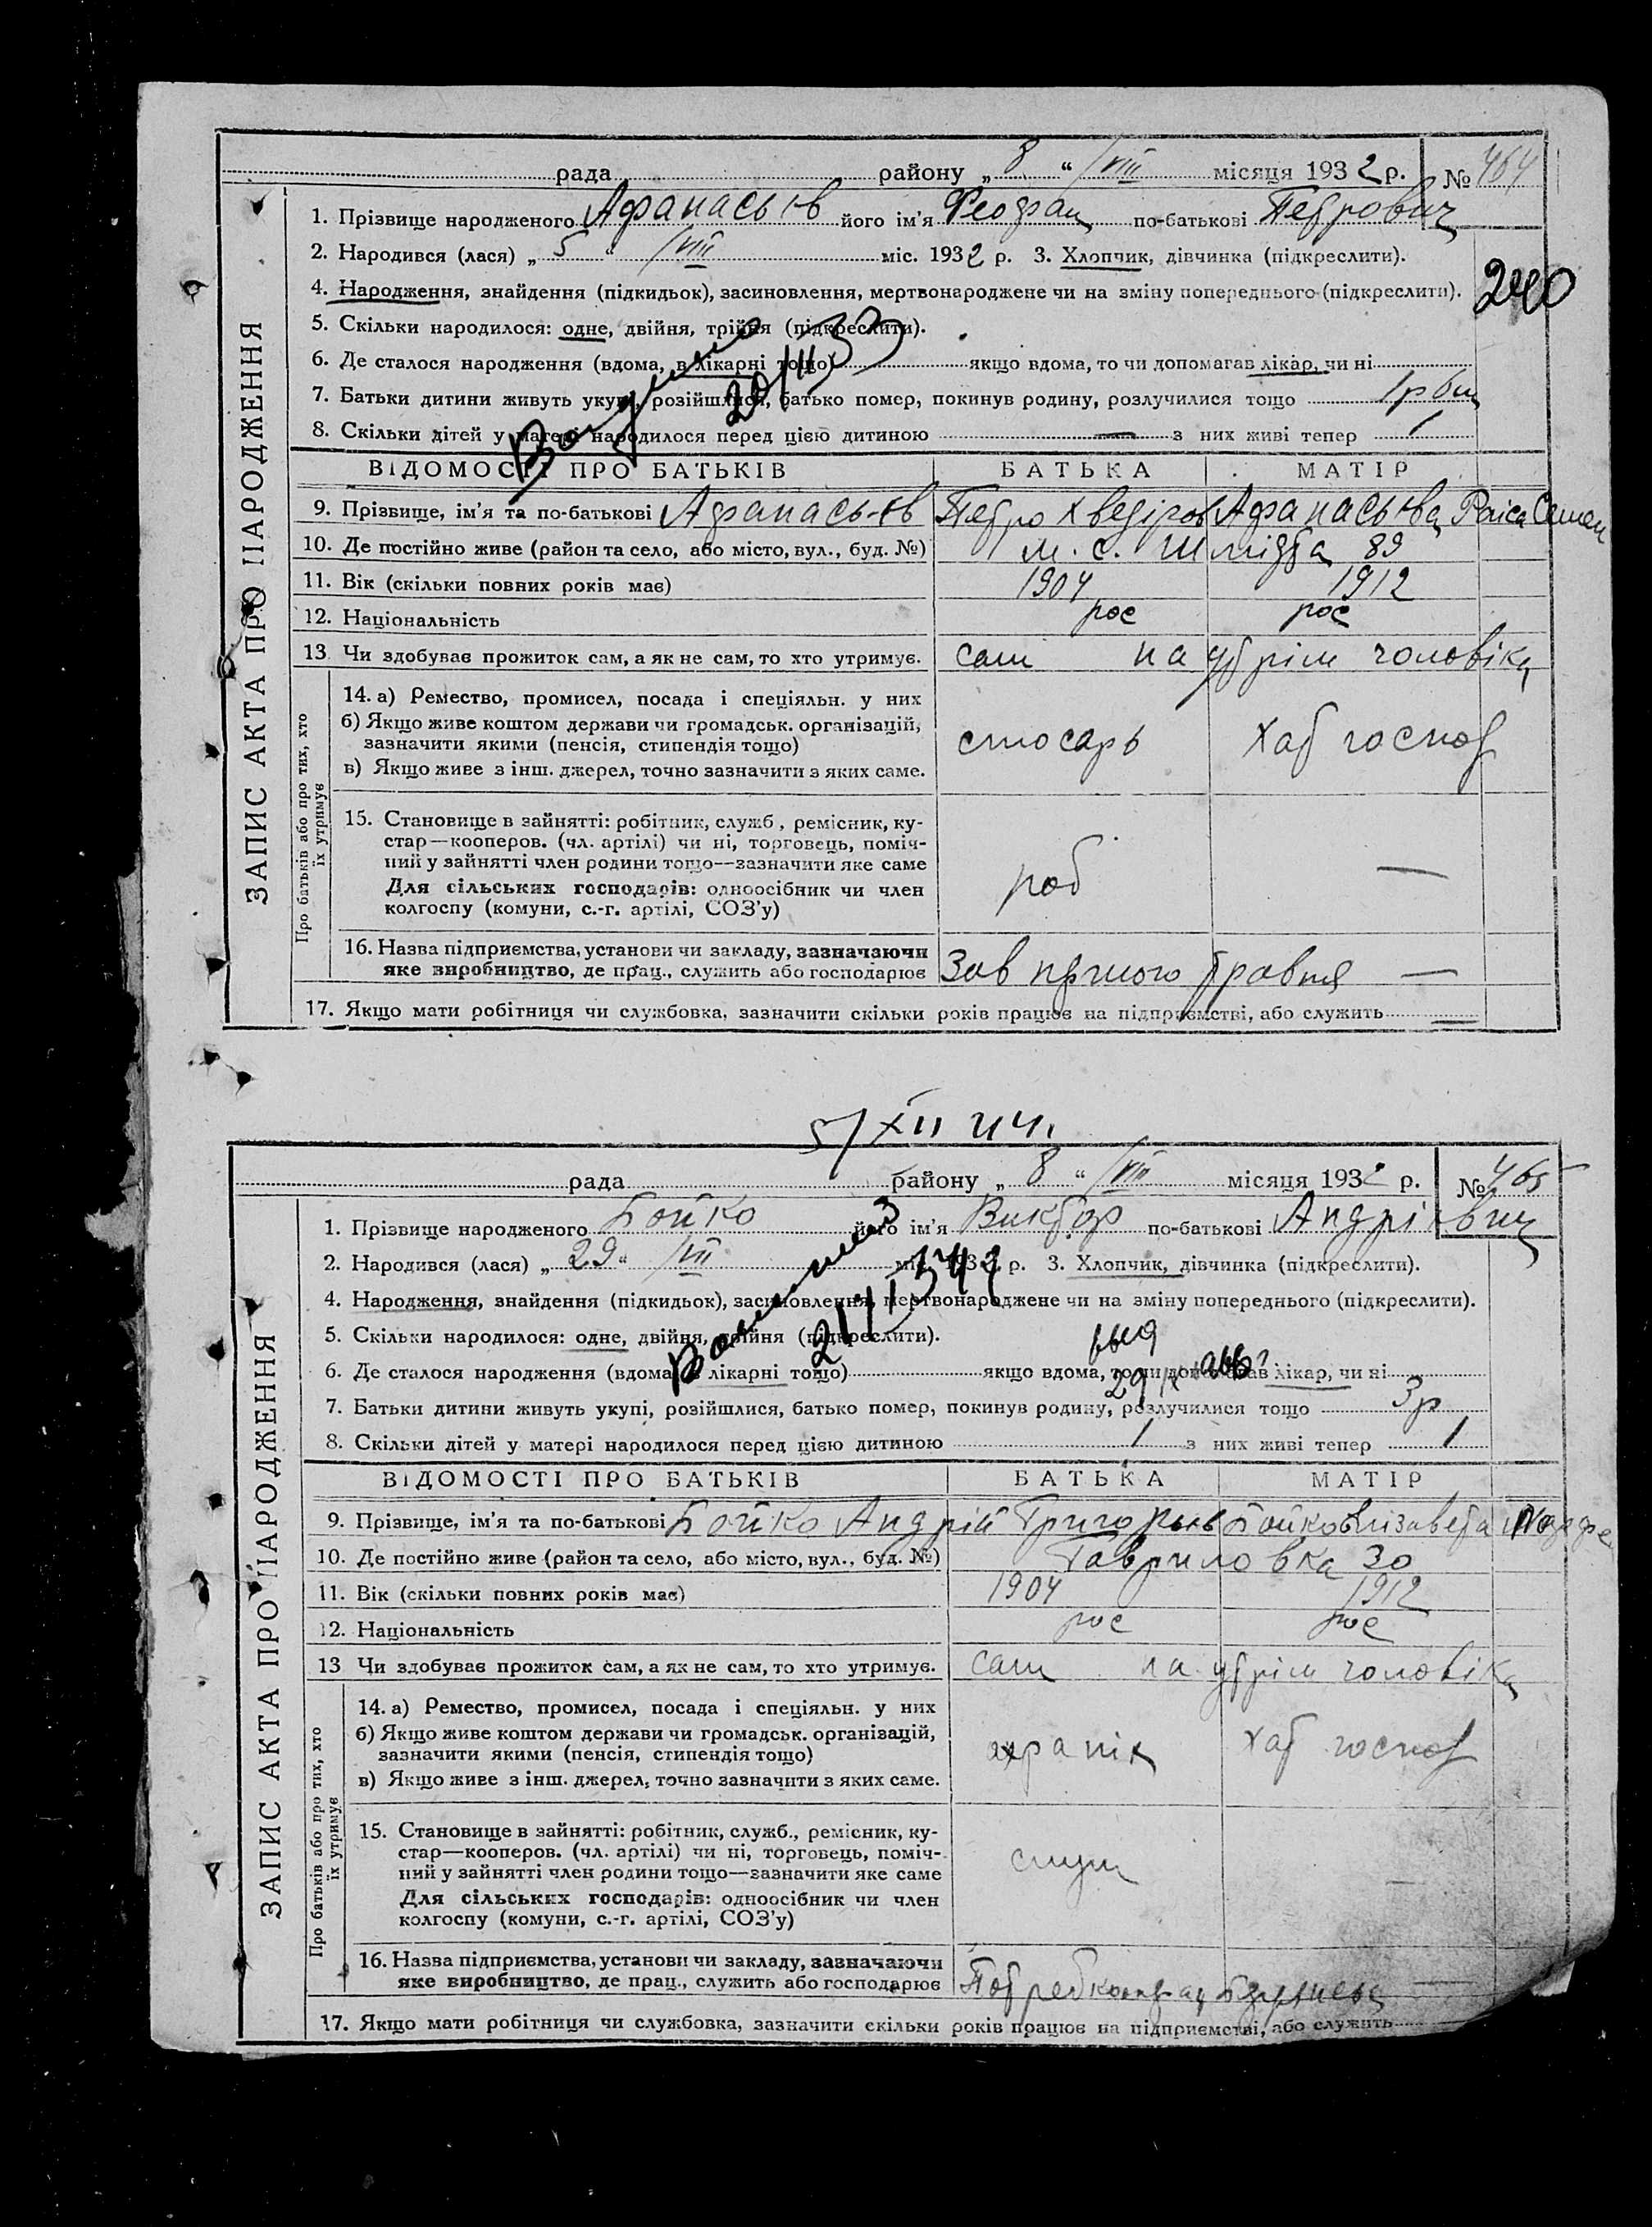 рада району „ 8 “ /VIII місяця 1932 р. № 464
1. Прізвище народженого Афанасьєв його ім'я Феофан по-батькові Петрович
2. Народився (лася) „ 5 “ /VIII міс. 1932 р. 3. Хлопчик, дівчинка (підкреслити).
240
4. Народження, знайдення (підкидьок), засиновлення, мертвонароджене чи на зміну попереднього (підкреслити).
5. Скільки народилося: одне, двійня, трійня (підкреслити).
6. Де сталося народження (вдома, в лікарні тощо) якщо вдома, то чи допомагав лікар, чи ні
7. Батьки дитини живуть укупі, розійшлися, батько помер, покинув родину, розлучилися тощо 1 р 6 м
8. Скільки дітей у матері народилося перед цією дитиною — з них живі тепер 1
ВІДОМОСТІ ПРО БАТЬКІВ БАТЬКА МАТІР
9. Прізвище, ім'я та по-батькові Афанасьєв Петро Хведіров Афанасьєва Раіса Семен
10. Де постійно живе (район та село, або місто, вул., буд. №) м. с. Шмідта 89
11. Вік (скільки повних років має) 1904 1912
12. Національність рос рос
13 Чи здобуває прожиток сам, а як не сам, то хто утримує. сам на утрім чоловіка
14. а) Ремество, промисел, посада і спеціяльн. у них
б) Якщо живе коштом держави чи громадськ. організацій,
зазначити якими (пенсія, стипендія тощо) слюсарь хат господ
в) Якщо живе з інш. джерел, точно зазначити з яких саме.
15. Становище в зайнятті: робітник, служб., ремісник, ку-
стар—кооперов. (чл. артілі) чи ні, торговець, поміч-
ний у зайнятті член родини тощо—зазначити яке саме
Для сільських господарів: одноосібник чи член роб —
колгоспу (комуни, с.-г. артілі, СОЗ'у)
16. Назва підприємства, установи чи закладу, зазначаючи
яке виробництво, де прац., служить або господарює Зав першого травня —
17. Якщо мати робітниця чи службовка, зазначити скільки років працює на підприємстві, або служить —
ЗАПИС АКТА ПРО НАРОДЖЕННЯ
Про батьків або про тих, хто
їх утримує
5/XII 44.
рада району „ 8 “ /VIII місяця 1932 р. № 465
1. Прізвище народженого Бойко його ім'я Виктор по-батькові Андрієвич
2. Народився (лася) „ 29 “ /VII міс. 1932 р. 3. Хлопчик, дівчинка (підкреслити).
4. Народження, знайдення (підкидьок), засиновлення, мертвонароджене чи на зміну попереднього (підкреслити).
5. Скільки народилося: одне, двійня, трійня (підкреслити).
6. Де сталося народження (вдома, в лікарні тощо) якщо вдома, то чи допомагав лікар, чи ні
7. Батьки дитини живуть укупі, розійшлися, батько помер, покинув родину, розлучилися тощо 3 р
8. Скільки дітей у матері народилося перед цією дитиною 1 з них живі тепер 1
ВІДОМОСТІ ПРО БАТЬКІВ БАТЬКА МАТІР
9. Прізвище, ім'я та по-батькові Бойко Андрій Григорьєв Бойко Єлізавета
10. Де постійно живе (район та село, або місто, вул., буд. №) Гавриловка 30
11. Вік (скільки повних років має) 1904 1912
12. Національність рос рос
13 Чи здобуває прожиток сам, а як не сам, то хто утримує. сам на утрім чоловіка
14. а) Ремество, промисел, посада і спеціяльн. у них
б) Якщо живе коштом держави чи громадськ. організацій,
зазначити якими (пенсія, стипендія тощо) ахранік хат господ
в) Якщо живе з інш. джерел, точно зазначити з яких саме.
15. Становище в зайнятті: робітник, служб., ремісник, ку-
стар—кооперов. (чл. артілі) чи ні, торговець, поміч-
ний у зайнятті член родини тощо—зазначити яке саме служ
Для сільських господарів: одноосібник чи член
колгоспу (комуни, с.-г. артілі, СОЗ'у)
16. Назва підприємства, установи чи закладу, зазначаючи
яке виробництво, де прац., служить або господарює —
17. Якщо мати робітниця чи службовка, зазначити скільки років працює на підприємстві, або служить
ЗАПИС АКТА ПРО НАРОДЖЕННЯ
Про батьків або про тих, хто
їх утримує